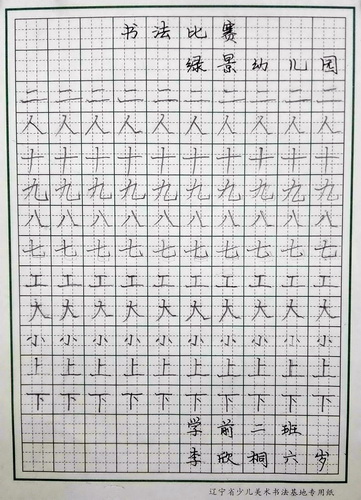 书法比赛
绿景幼儿园
二二二二二二二二二二
人人人人人人人人人人
十十十十十十十十十十
九九九九九九九九九九
八八八八八八八八八八
七七七七七七七七七七
工工工工工工工工工工
大大大大大大大大大大
小小小小小小小小小小
上上上上上上上上上上
下下下下下下下下下下
学前二班
李欣桐六岁
辽宁省少儿美术书法基地专用纸